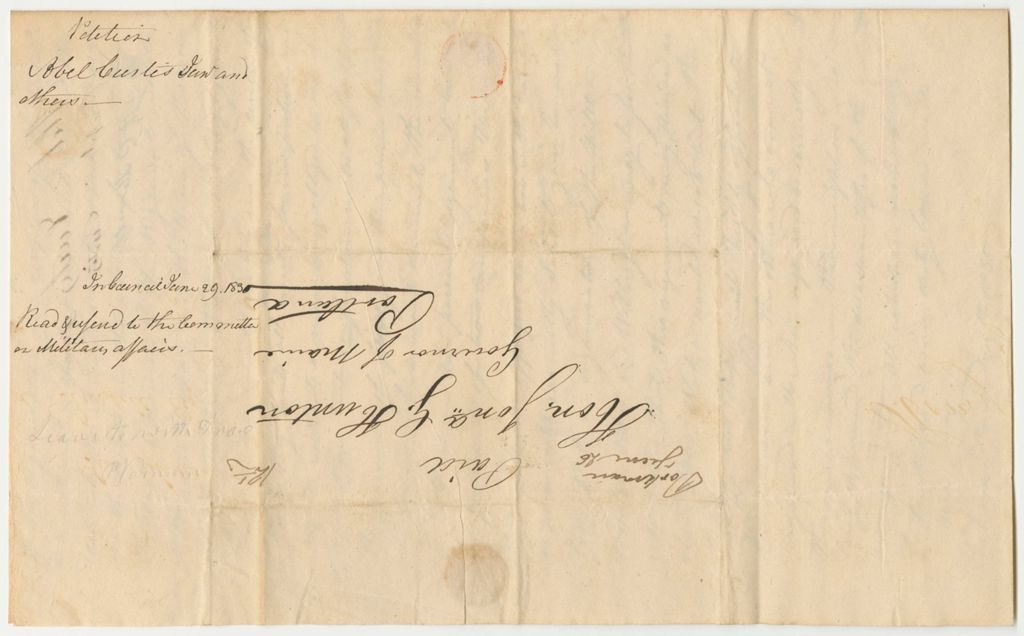 Petition
Abel Curtis Junr and
others.
In Council June 29. 1830
Read & referd to the Committee
on Military affairs.
Parkman
June 26
Paid
12½
Hon. Jona. G. Hunton
Governor of Maine
Portland